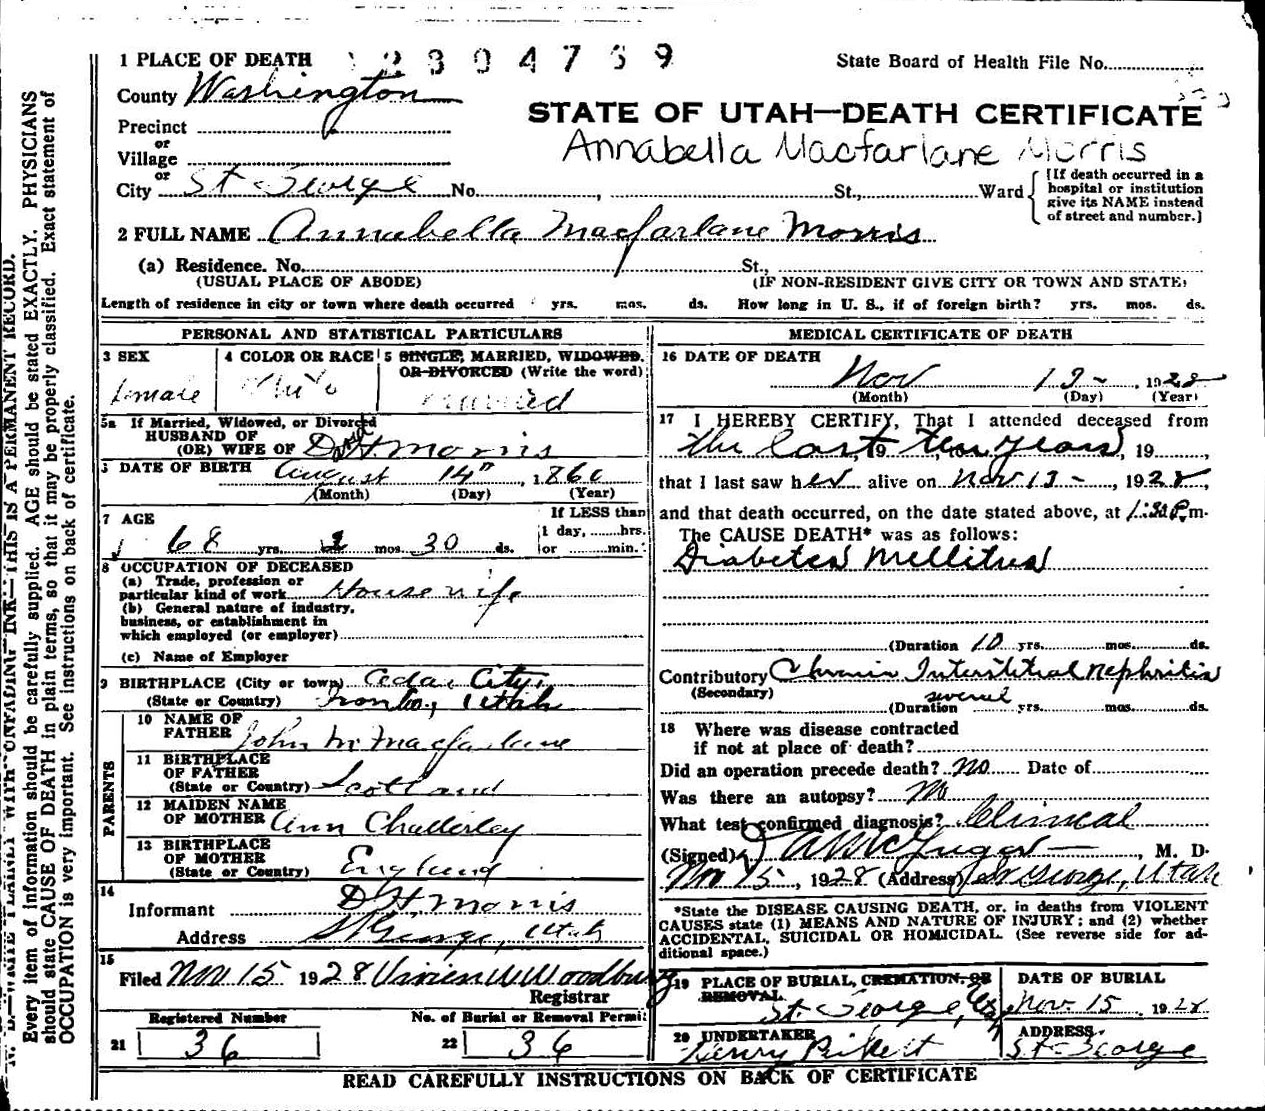 1 PLACE OF DEATH 2304769 State Board of Health File No.
County Washington
STATE OF UTAH—DEATH CERTIFICATE
Precinct
or
Village
Annabella Macfarlane Morris
or
City St George No. , St., Ward
[If death occurred in a
hospital or institution
give its NAME instead
of street and number.]
2 FULL NAME Annabella Macfarlane Morris
(a) Residence. No. St.,
(USUAL PLACE OF ABODE) (IF NON-RESIDENT GIVE CITY OR TOWN AND STATE)
Length of residence in city or town where death occurred yrs. mos. ds. How long in U. S., if of foreign birth? yrs. mos. ds.
PERSONAL AND STATISTICAL PARTICULARS
3 SEX
female
4 COLOR OR RACE
White
5 SINGLE, MARRIED, WIDOWED,
OR DIVORCED (Write the word)
married
5a If Married, Widowed, or Divorced
HUSBAND OF
(OR) WIFE OF D H Morris
6 DATE OF BIRTH August 14" , 1860
(Month) (Day) (Year)
7 AGE
68 yrs. 2 mos. 30 ds.
If LESS than
1 day, hrs.
or min.
8 OCCUPATION OF DECEASED
(a) Trade, profession or
particular kind of work Housewife
(b) General nature of industry,
business, or establishment in
which employed (or employer)
(c) Name of Employer
9 BIRTHPLACE (City or town) Cedar City,
(State or Country) Iron Co., Utah
PARENTS
10 NAME OF
FATHER John M Macfarlane
11 BIRTHPLACE
OF FATHER
(State or Country) Scotland
12 MAIDEN NAME
OF MOTHER Ann Chatterley
13 BIRTHPLACE
OF MOTHER
(State or Country) England
14
Informant D H Morris
Address St George, Utah
15
Filed Nov 15 1928 Vivien W Woodbury
Registrar
Registered Number No. of Burial or Removal Permit
21 36 22 36
MEDICAL CERTIFICATE OF DEATH
16 DATE OF DEATH
Nov 13 - , 1928
(Month) (Day) (Year)
17 I HEREBY CERTIFY, That I attended deceased from
the last, 19 ten years, 19 ,
that I last saw her alive on Nov 13 - , 1928,
and that death occurred, on the date stated above, at 1:30 P.m.
The CAUSE DEATH* was as follows:
Diabetes Mellitus
(Duration 10 yrs. mos. ds.
Contributory Chronic Interstitial Nephritis
(Secondary)
several
(Duration yrs. mos. ds.
18 Where was disease contracted
if not at place of death?
Did an operation precede death? No Date of
Was there an autopsy? No
What test confirmed diagnosis? Clinical
(Signed) McGregor , M. D.
Nov 15, 1928 (Address) St George, Utah
*State the DISEASE CAUSING DEATH, or, in deaths from VIOLENT
CAUSES state (1) MEANS AND NATURE OF INJURY; and (2) whether
ACCIDENTAL, SUICIDAL OR HOMICIDAL. (See reverse side for ad-
ditional space.)
19 PLACE OF BURIAL, CREMATION, OR
REMOVAL
St. George, Utah
DATE OF BURIAL
Nov. 15 1928
20 UNDERTAKER
Henry Pikert
ADDRESS
St George
READ CAREFULLY INSTRUCTIONS ON BACK OF CERTIFICATE
N. B.—WRITE PLAINLY WITH UNFADING INK—THIS IS A PERMANENT RECORD.
Every item of information should be carefully supplied. AGE should be stated EXACTLY. PHYSICIANS
should state CAUSE OF DEATH in plain terms, so that it may be properly classified. Exact statement of
OCCUPATION is very important. See instructions on back of certificate.